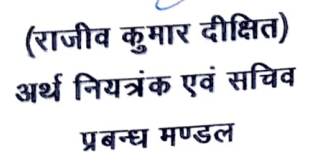 (राजीव कुमार दीक्षित)
अर्थ नियत्रंक एवं सचिव
प्रबन्ध मण्डल